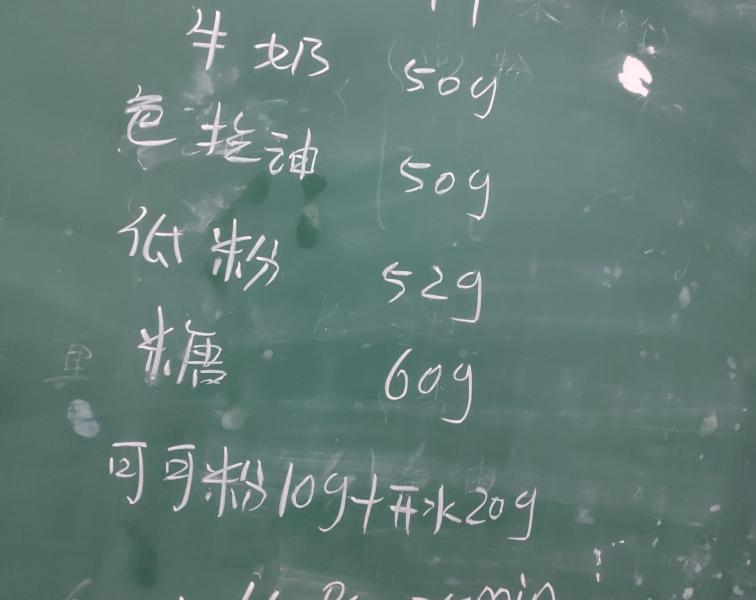 牛奶 50g
色拉油 50g
低粉 52g
糖 60g
可可粉10g+开水20g
min